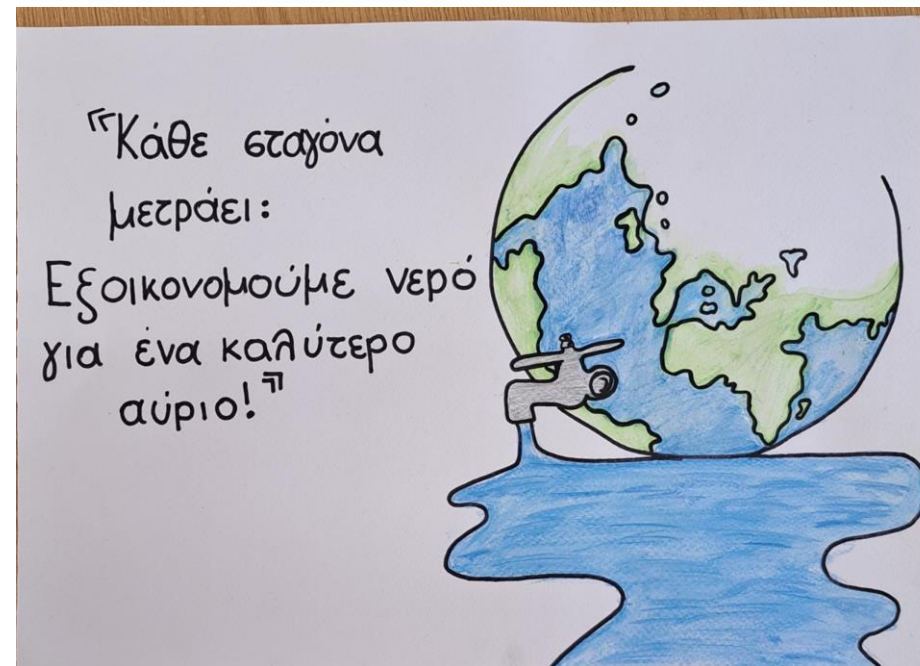 "Κάθε σταγόνα
μετράει:
Εξοικονομούμε νερό
για ένα καλύτερο
αύριο!"